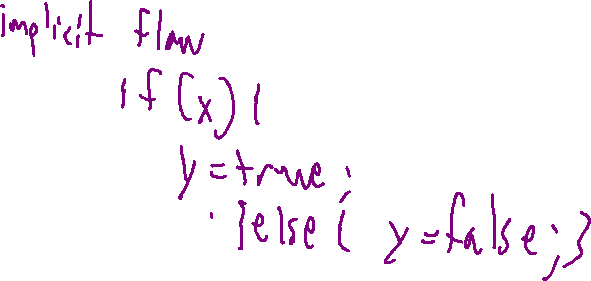 implicit flow
if (x) {
y = true;
} else { y = false; }